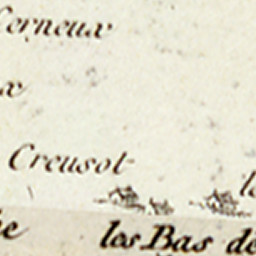 Cerneux
x
Creusot
le
les Bas de